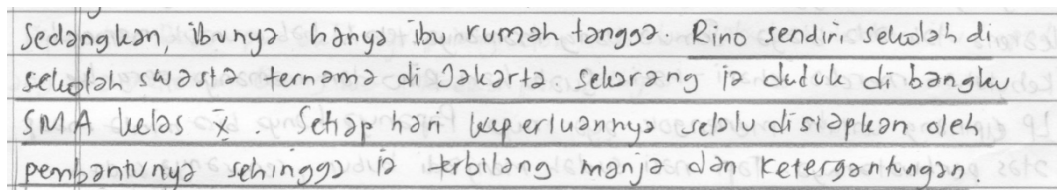 Sedangkan, ibunya hanya ibu rumah tangga. Rino sendiri sekolah di
sekolah swasta ternama di Jakarta. Sekarang ia duduk di bangku
SMA kelas X. Setiap hari keperluannya selalu disiapkan oleh
pembantunya sehingga ia terbilang manja dan ketergantungan.